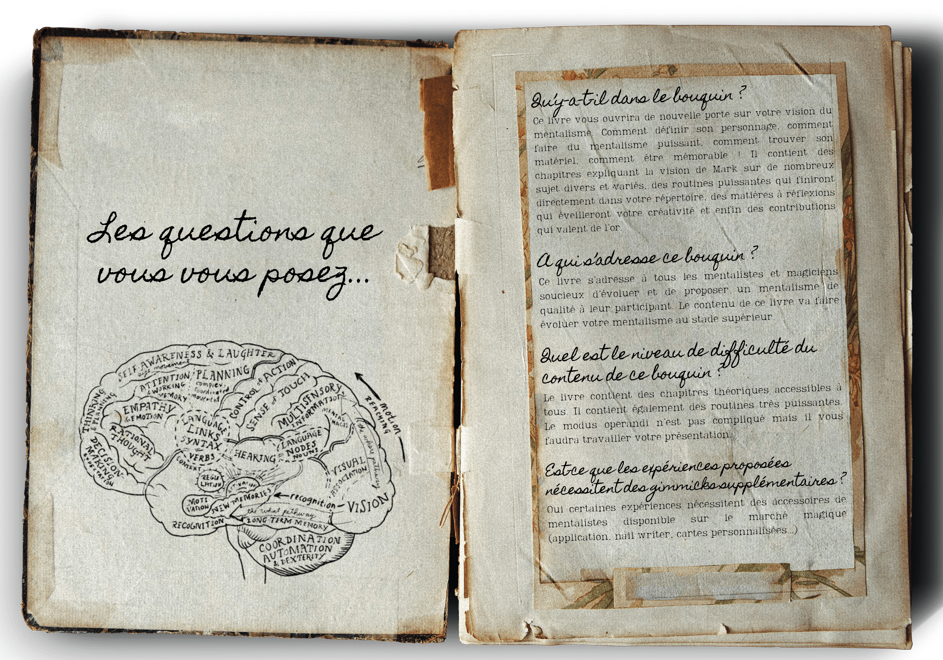 Les questions que
vous vous posez...
SELF AWARENESS & LAUGHTER
PLANNING
complex
coordinated
movement
ATTENTION
WORKING
MEMORY
CONTROL of ACTION
SENSE of TOUCH
MULTISENSORY
INFORMATION
THINKING
PLANNING
EMPATHY
& EMOTION
RATIONAL
THOUGHT
DECISION
MAKING
LANGUAGE
LINKS
SYNTAX
VERBS
HEARING
LANGUAGE
NODES
NOUNS
VISUAL
ASSOCIATION
motion
reading
NEW MEMORIES
recognition
VISION
the what pathway
RECOGNITION
LONG TERM MEMORY
COORDINATION
AUTOMATION
& DEXTERITY
Qu'y-a-t-il dans le bouquin ?
Ce livre vous ouvrira de nouvelle porte sur votre vision du
mentalisme. Comment définir son personnage, comment
faire du mentalisme puissant, comment trouver son
matériel, comment être mémorable ! Il contient des
chapitres expliquant la vision de Mark sur de nombreux
sujet divers et variés, des routines puissantes qui finiront
directement dans votre répertoire, des matières à réflexions
qui éveilleront votre créativité et enfin des contributions
qui valent de l'or.
A qui s'adresse ce bouquin ?
Ce livre s'adresse à tous les mentalistes et magiciens
soucieux d'évoluer et de proposer un mentalisme de
qualité à leur participant. Le contenu de ce livre va faire
évoluer votre mentalisme au stade supérieur.
Quel est le niveau de difficulté du
contenu de ce bouquin ?
Le livre contient des chapitres théoriques accessibles à
tous. Il contient également des routines très puissantes.
Le modus operandi n'est pas compliqué mais il vous
faudra travailler votre présentation.
Est-ce que les expériences proposées
nécessitent des gimmicks supplémentaires ?
Oui certaines expériences nécessitent des accessoires de
mentalistes disponible sur le marché magique
(application, nail writer, cartes personnalisées...)